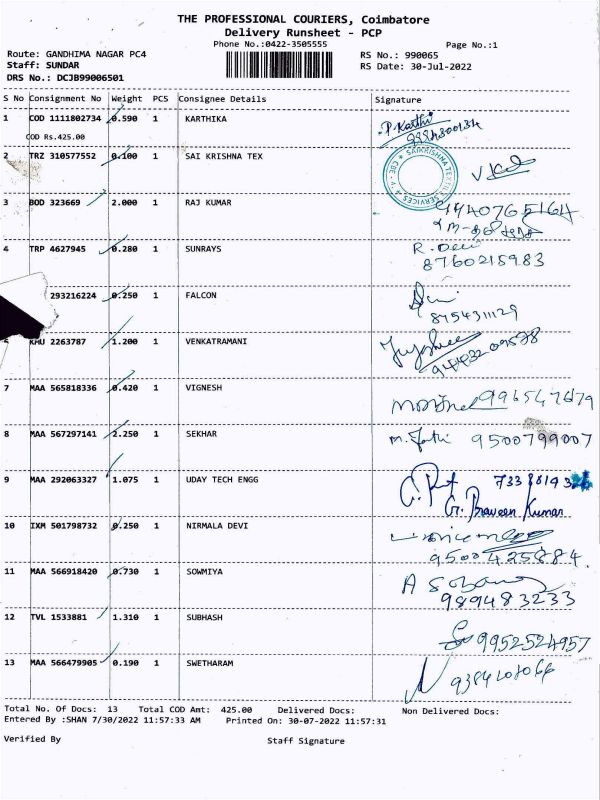 THE PROFESSIONAL COURIERS, Coimbatore
Delivery Runsheet - PCP
Phone No.:0422-3505555
Page No.:1
Route: GANDHIMA NAGAR PC4
RS No.: 990065
Staff: SUNDAR
RS Date: 30-Jul-2022
DRS No.: DCJB99006501
S No Consignment No Weight PCS Consignee Details Signature
1 COD 1111802734 0.590 1 KARTHIKA P.Karthi
COD Rs.425.00
2 TRZ 310577552 0.100 1 SAI KRISHNA TEX
3 BOD 323669 2.000 1 RAJ KUMAR
4 TRP 4627945 0.280 1 SUNRAYS R. Devi
8760215983
293216224 0.250 1 FALCON
8754311129
KMU 2263787 1.200 1 VENKATRAMANI
7 MAA 565818336 0.420 1 VIGNESH
8 MAA 567297141 2.250 1 SEKHAR 9500799007
9 MAA 292063327 1.075 1 UDAY TECH ENGG
G. Praveen Kumar
10 IXM 501798732 0.250 1 NIRMALA DEVI
9500425884.
11 MAA 566918420 0.730 1 SOWMIYA
989483233
12 TVL 1533881 1.310 1 SUBHASH
9952524957
13 MAA 566479905 0.190 1 SWETHARAM
Total No. Of Docs: 13 Total COD Amt: 425.00 Delivered Docs: Non Delivered Docs:
Entered By :SHAN 7/30/2022 11:57:33 AM Printed On: 30-07-2022 11:57:31
Verified By Staff Signature